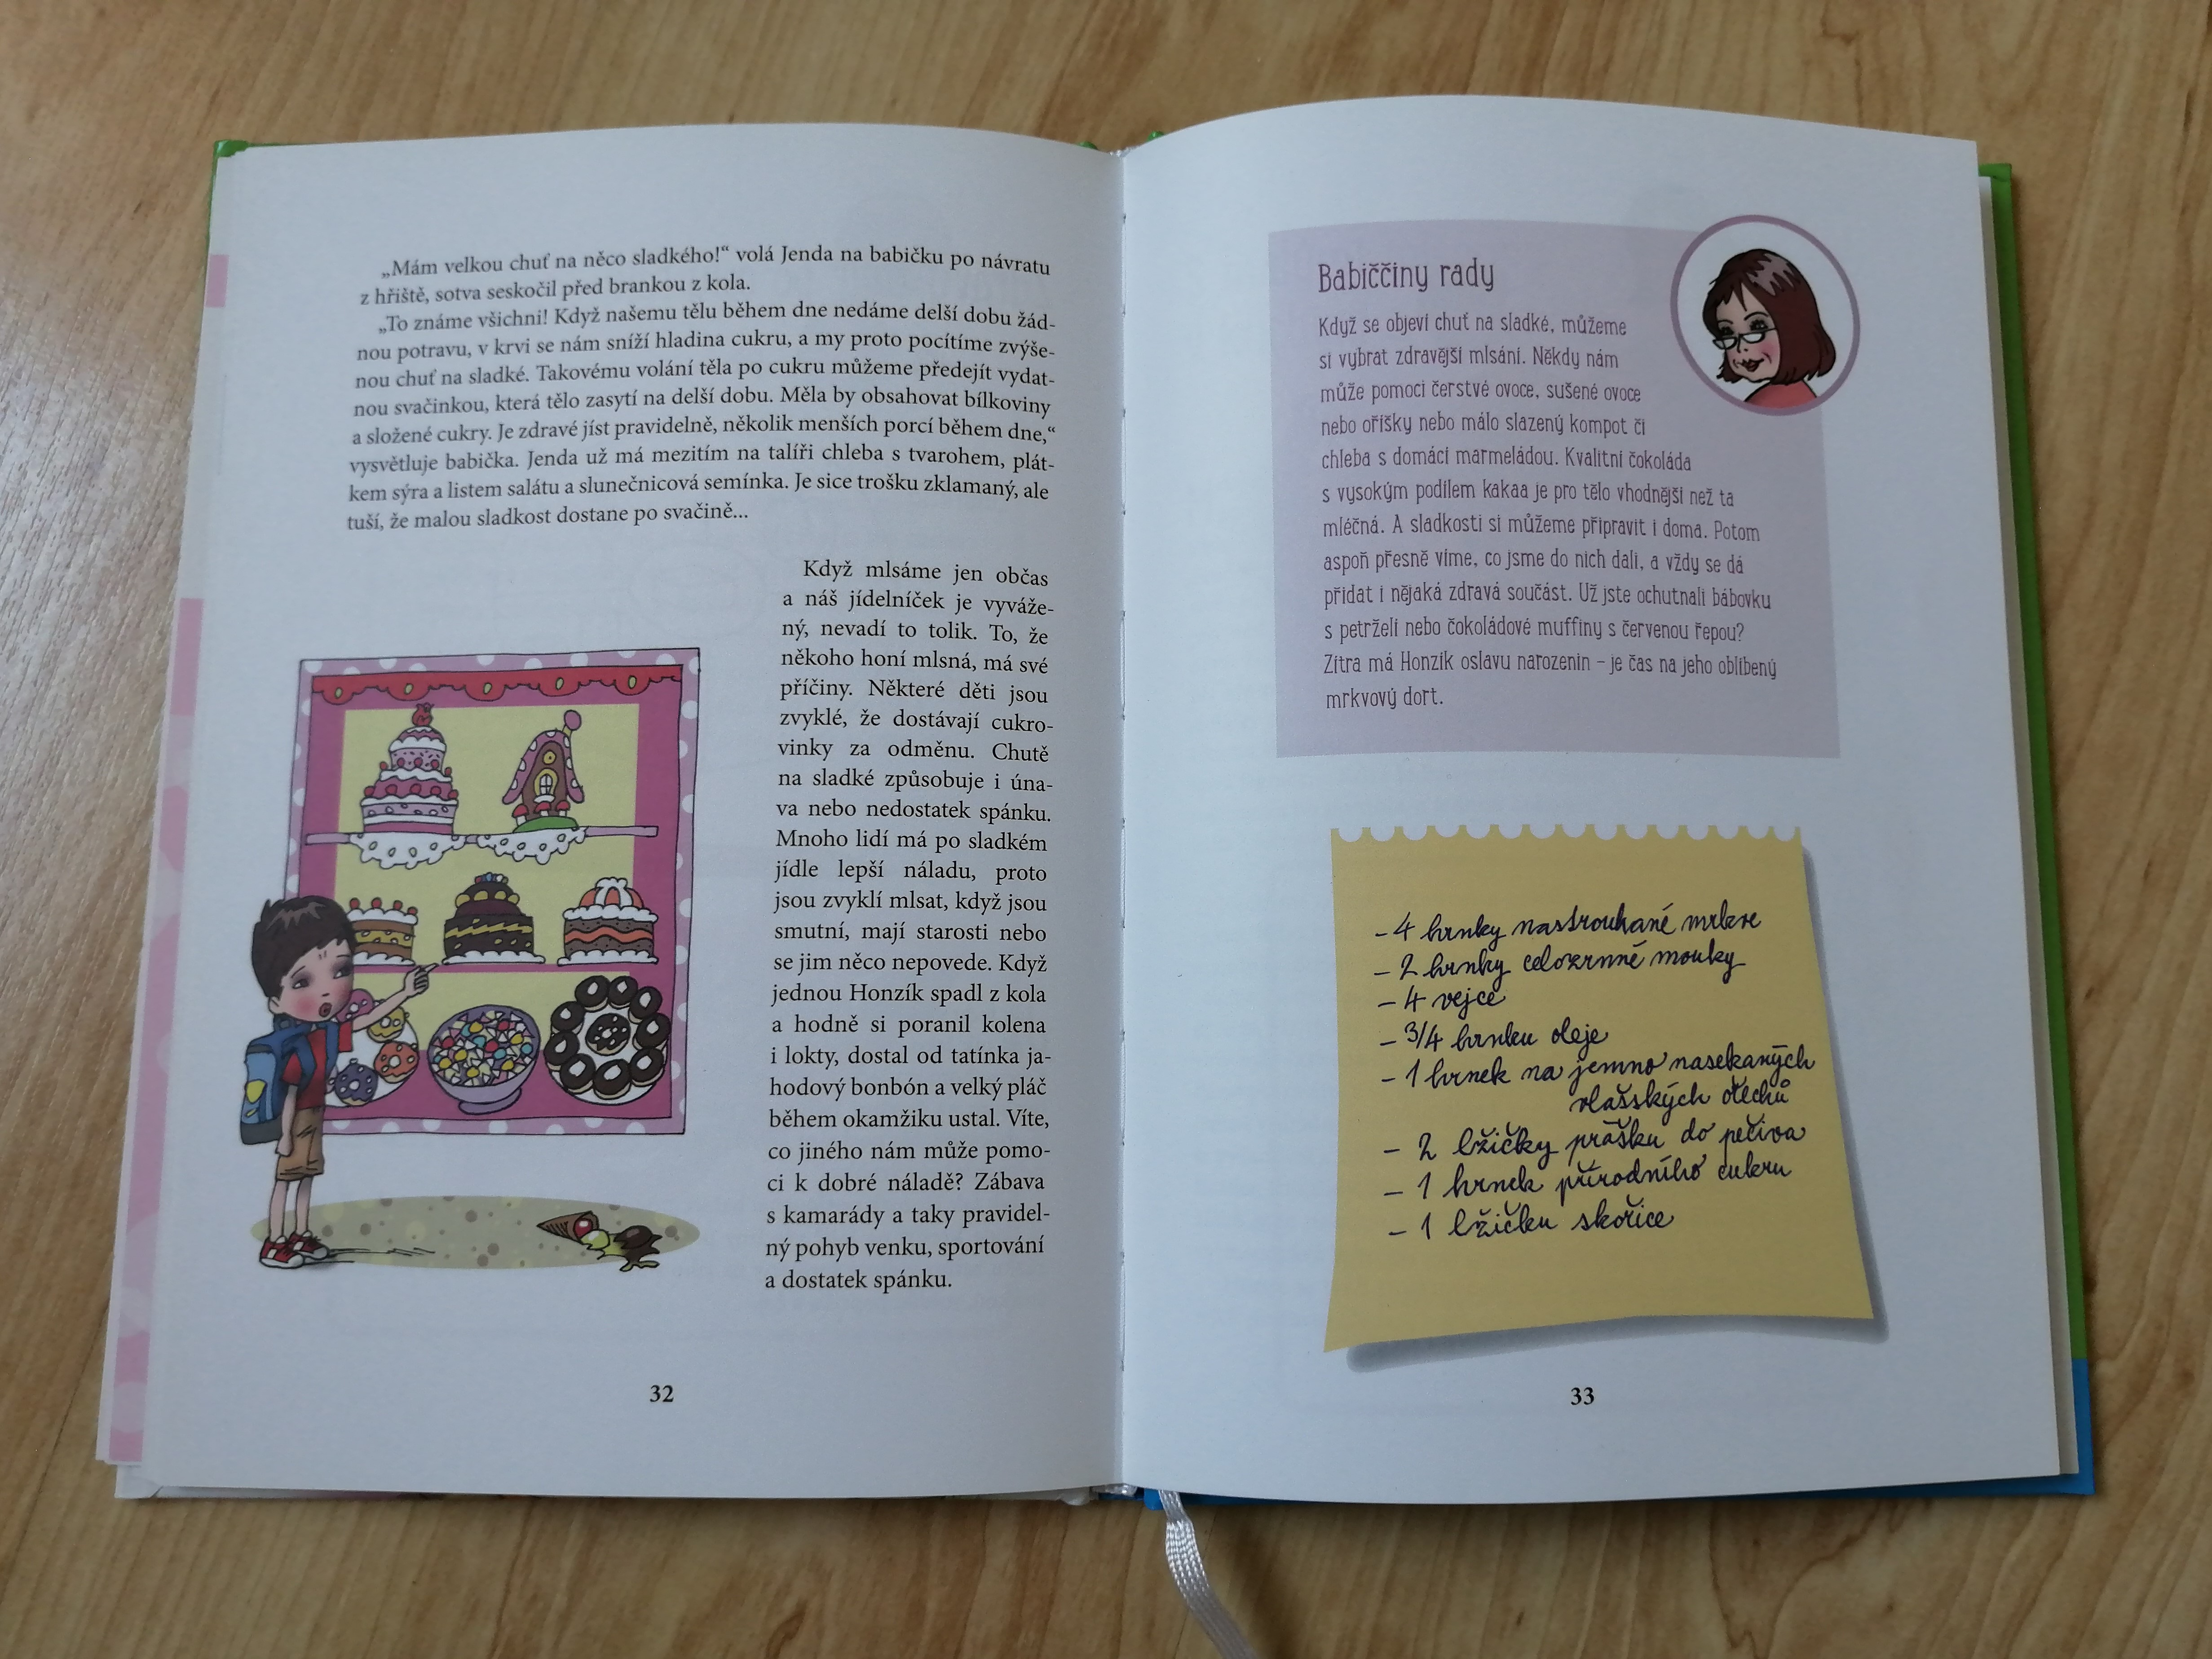 „Mám velkou chuť na něco sladkého!“ volá Jenda na babičku po návratu
z hřiště, sotva seskočil před brankou z kola.
„To známe všichni! Když našemu tělu během dne nedáme delší dobu žád-
nou potravu, v krvi se nám sníží hladina cukru, a my proto pocítíme zvýše-
nou chuť na sladké. Takovému volání těla po cukru můžeme předejít vydat-
nou svačinkou, která tělo zasytí na delší dobu. Měla by obsahovat bílkoviny
a složené cukry. Je zdravé jíst pravidelně, několik menších porcí během dne,“
vysvětluje babička. Jenda už má mezitím na talíři chleba s tvarohem, plát-
kem sýra a listem salátu a slunečnicová semínka. Je sice trošku zklamaný, ale
tuší, že malou sladkost dostane po svačině...
Když mlsáme jen občas
a náš jídelníček je vyváže-
ný, nevadí to tolik. To, že
někoho honí mlsná, má své
příčiny. Některé děti jsou
zvyklé, že dostávají cukro-
vinky za odměnu. Chutě
na sladké způsobuje i úna-
va nebo nedostatek spánku.
Mnoho lidí má po sladkém
jídle lepší náladu, proto
jsou zvyklí mlsat, když jsou
smutní, mají starosti nebo
se jim něco nepovede. Když
jednou Honzík spadl z kola
a hodně si poranil kolena
i lokty, dostal od tatínka ja-
hodový bonbón a velký pláč
během okamžiku ustal. Víte,
co jiného nám může pomo-
ci k dobré náladě? Zábava
s kamarády a taky pravidel-
ný pohyb venku, sportování
a dostatek spánku.
32
Babiččiny rady
Když se objeví chuť na sladké, můžeme
si vybrat zdravější mlsání. Někdy nám
může pomoci čerstvé ovoce, sušené ovoce
nebo oříšky nebo málo slazený kompot či
chleba s domácí marmeládou. Kvalitní čokoláda
s vysokým podílem kakaa je pro tělo vhodnější než ta
mléčná. A sladkosti si můžeme připravit i doma. Potom
aspoň přesně víme, co jsme do nich dali, a vždy se dá
přidat i nějaká zdravá součást. Už jste ochutnali bábovku
s petrželí nebo čokoládové muffiny s červenou řepou?
Zítra má Honzík oslavu narozenin – je čas na jeho oblíbený
mrkvový dort.
- 4 hrnky nastrouhané mrkve
- 2 hrnky celozrnné mouky
- 4 vejce
- 3/4 hrnku oleje
- 1 hrnek na jemno nasekaných
vlašských ořechů
- 2 lžičky prášku do pečiva
- 1 hrnek přírodního cukru
- 1 lžičku skořice
33